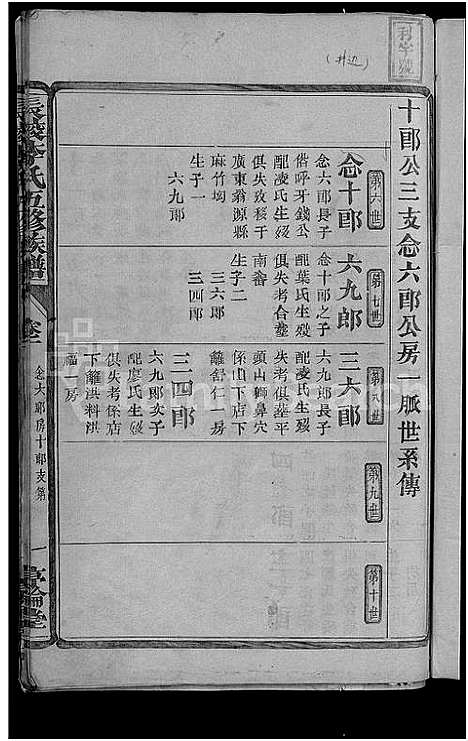 利字號
(井边)
十郎公三支念六郎公房一脈世系傳
第六世
念十郎
念六郎長子
偕呼牙錢公
配凌氏生殁
俱失攷移于
廣東翁源縣
麻竹坳
生子一
六九郎
第七世
六九郎
念十郎之子
配葉氏生殁
俱失考合塟
南畬
生子二
三六郎
三四郎
第八世
三六郎
六九郎長子
配凌氏生殁
失考俱塟平
頭山獅鼻穴
係山下店下
離舒仁一房
三四郎
六九郎次子
配廖氏生殁
俱失考係店
下離洪料洪
福一房
第九世
第十世
李氏五修族譜
卷二
念大郎房十郎支第
一